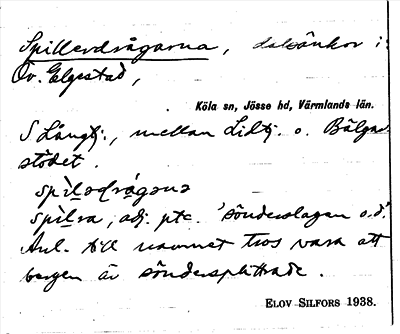 Spillerdrågarna, dalsänkor i
Öv. Elgestad,
Köla sn, Jösse hd, Värmlands län.
S Långtj., mellan Lidtj. o. Bälga-
stödet.
spiḷadrågana
spiḷra, adj. ptc. 'sönderslagen o.d.'
Anl. till namnet tros vara att
bergen är söndersplittrade.
ELOV SILFORS 1938.